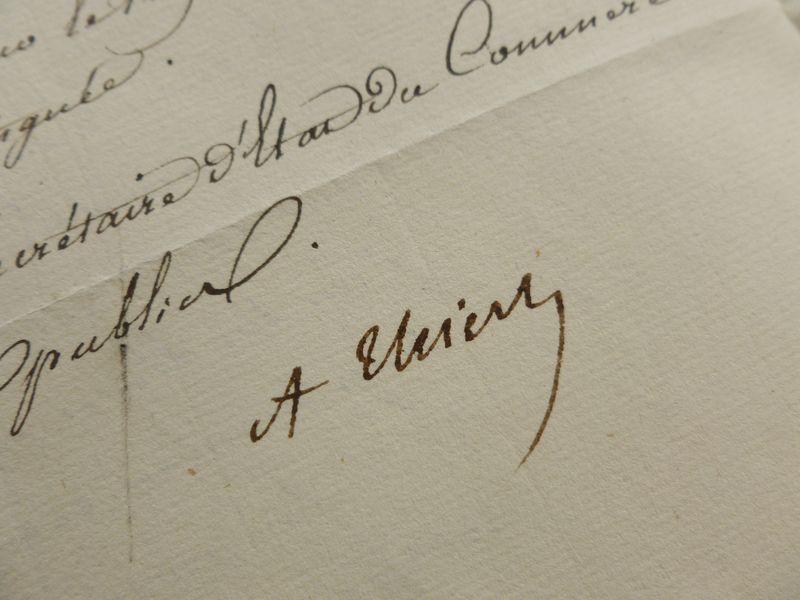 crétaire d'Etat du Commerce
publics.
A Thiers